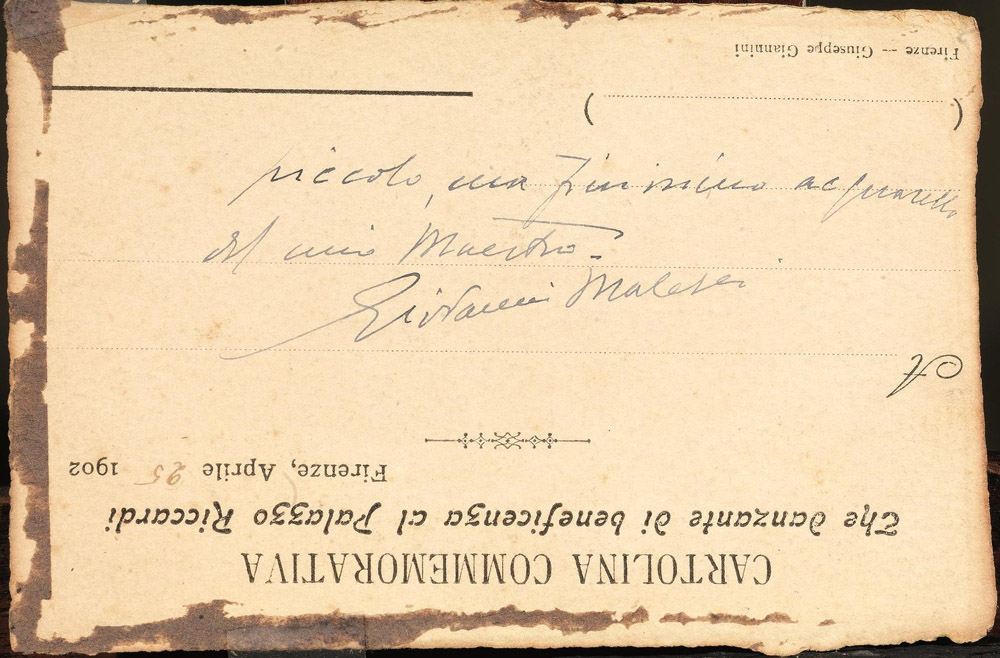 CARTOLINA COMMEMORATIVA
The danzante di beneficenza al Palazzo Riccardi
Firenze, Aprile 25 1902
A
( )
Firenze — Giuseppe Giannini
piccolo, ma finissimo acquarello
del mio Maestro.
Giovanni Malesci